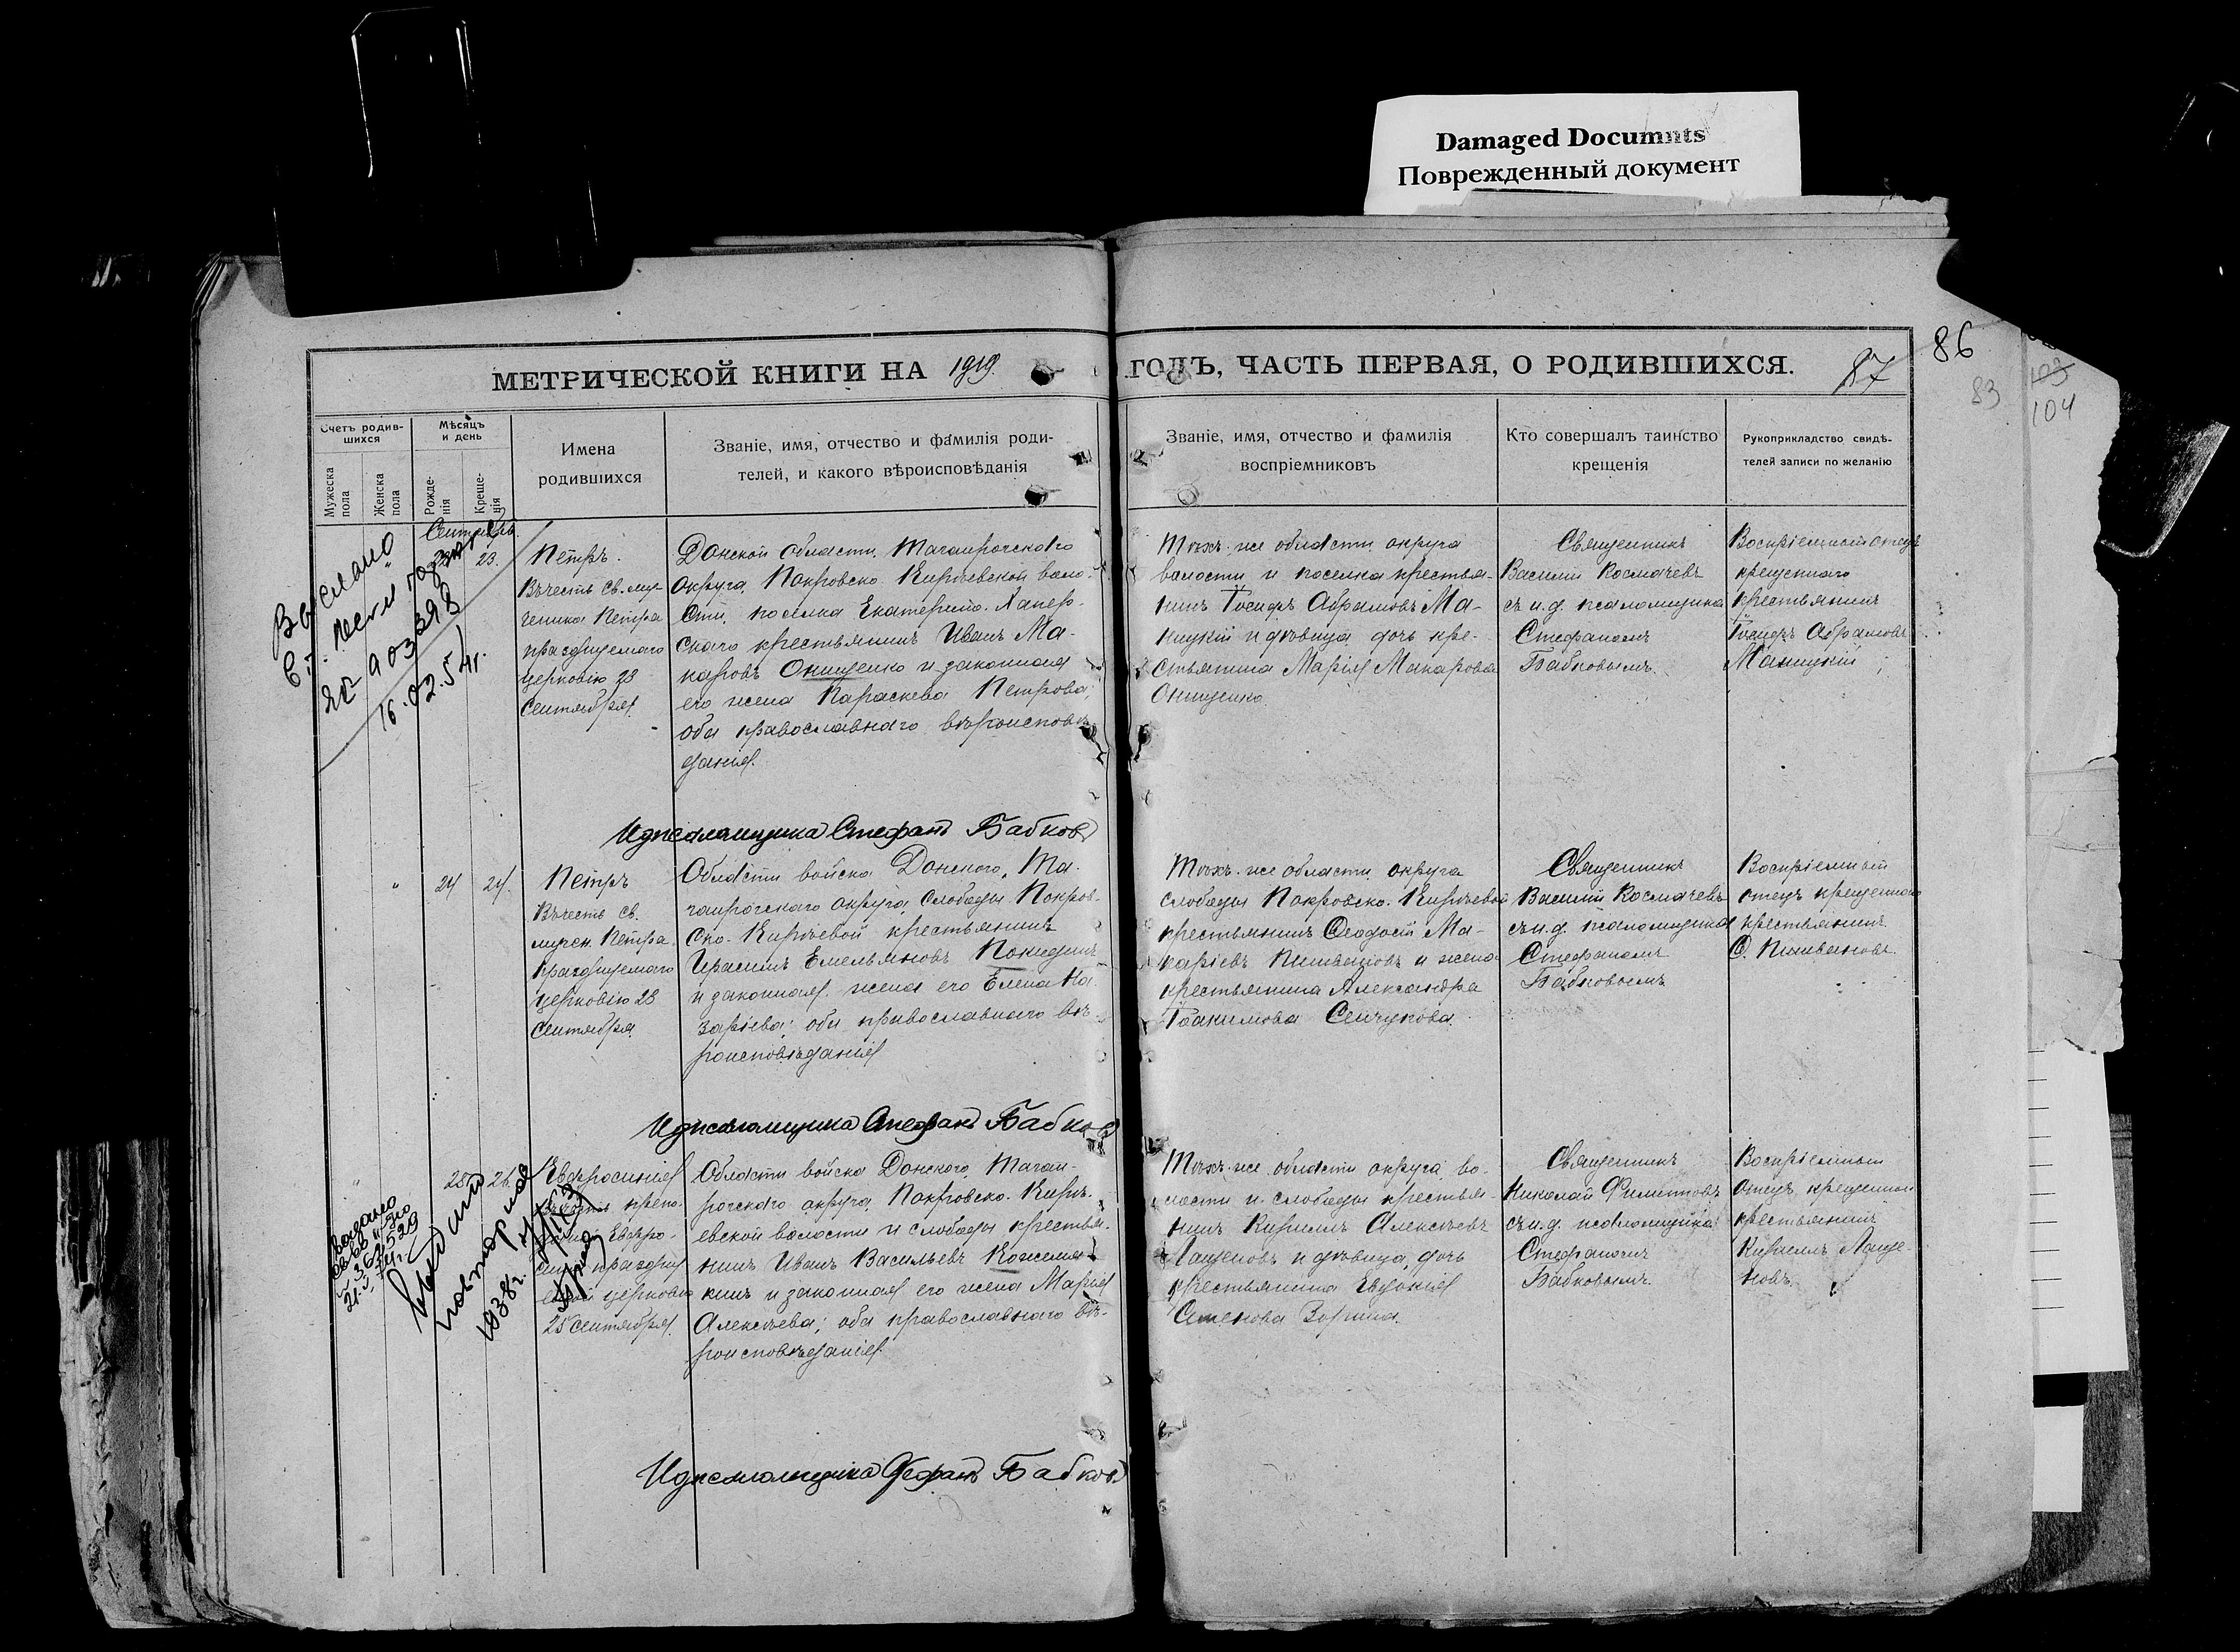 Damaged Documents
Поврежденный документ
86
87
83
103
104
МЕТРИЧЕСКОЙ КНИГИ НА 1919 ГОДЪ, ЧАСТЬ ПЕРВАЯ, О РОДИВШИХСЯ.
Счетъ родив-
шихся
Мужеска
пола
Женска
пола
Мѣсяцъ
и день
Рожде-
нія
Креще-
нія
Имена
родившихся
Званіе, имя, отчество и фамилія роди-
телей, и какого вѣроисповѣданія
Званіе, имя, отчество и фамилія
воспріемниковъ
Кто совершалъ таинство
крещенія
Рукоприкладство свидѣ-
телей записи по желанію
Выслано
903398
16.02.54г.
Сентябрь
23.
Петръ.
Въ честь св. му-
ченика Петра
празднуемаго
церковію 28
сентября.
Донской области, Таганрогскаго
округа, Покровско-Кирѣевской воло-
сти, поселка Екатерино-Хапер-
скаго крестьянинъ Иванъ Ма-
каровъ Онищенко и законная
его жена Параскева Петрова;
оба православнаго вѣроисповѣ-
данія.
Тѣхъ-же области, округа
волости и поселка крестья-
нинъ Іосифъ Абрамовъ Ма-
ницкій и дѣвица, дочь кре-
стьянина Марія Макарова
Онищенко.
Священникъ
Василій Космачевъ
съ и.д. псаломщика
Стефаномъ
Бабковымъ.
Воспріемный отецъ
крещеннаго
крестьянинъ
Іосифъ Абрамовъ
Маницкій
И д псаломщика Стефанъ Бабковъ
24
24.
Петръ
Въ честь св.
мучен. Петра
празднуемаго
церковію 28
сентября.
Области войска Донского, Та-
ганрогскаго округа, слободы Покров-
ско-Кирѣевой крестьянинъ
Ирасимъ Емельяновъ
и законная жена его Елена На-
заріева; оба православнаго вѣ-
роисповѣданія
Тѣхъ-же области, округа
слободы Покровско-Кирѣевой
крестьянинъ Ѳеодосій Ма-
каріевъ Пишвановъ и жена
крестьянина Александра
Іоакимова Сенчукова.
Священникъ
Василій Космачевъ
съ и.д. псаломщика
Стефаномъ
Бабковымъ
Воспріемный
отецъ крещеннаго
крестьянинъ
Ѳ. Пишвановъ.
И д псаломщика Стефанъ Бабковъ
26.
Евфросинія
Евфро-
церковію
25 сентября.
выдано
повторное
1938г.
Области войска Донского, Таган-
рогскаго округа, Покровско-Кирѣ-
евской волости и слободы крестья-
нинъ Иванъ Васильевъ Кожемя-
кинъ и законная его жена Марія
Алексѣева; оба православнаго вѣ-
роисповѣданія.
Тѣхъ-же области, округа, во-
лости и слободы крестья-
нинъ Кириллъ Алексѣевъ
Лащеновъ и дѣвица, дочь
крестьянина Евдокія
Семенова Зорина.
Священникъ
Николай Филипповъ
съ и.д. псаломщика
Стефаномъ
Бабковымъ.
Воспріемный
отецъ крещенной
крестьянинъ
Кириллъ Лаще-
новъ.
И д псаломщика Стефанъ Бабковъ